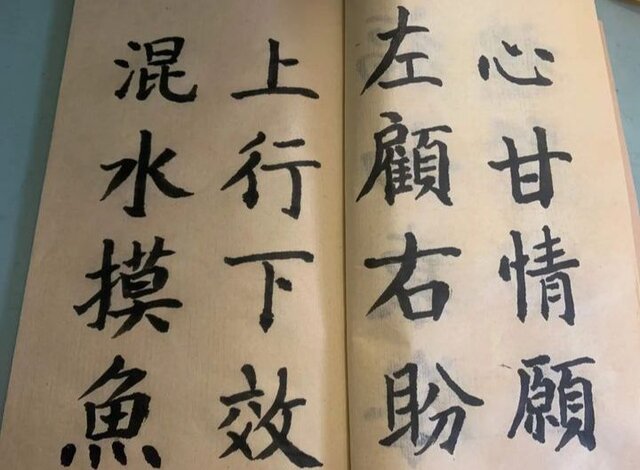 心甘情願
左顧右盼
上行下效
混水摸魚